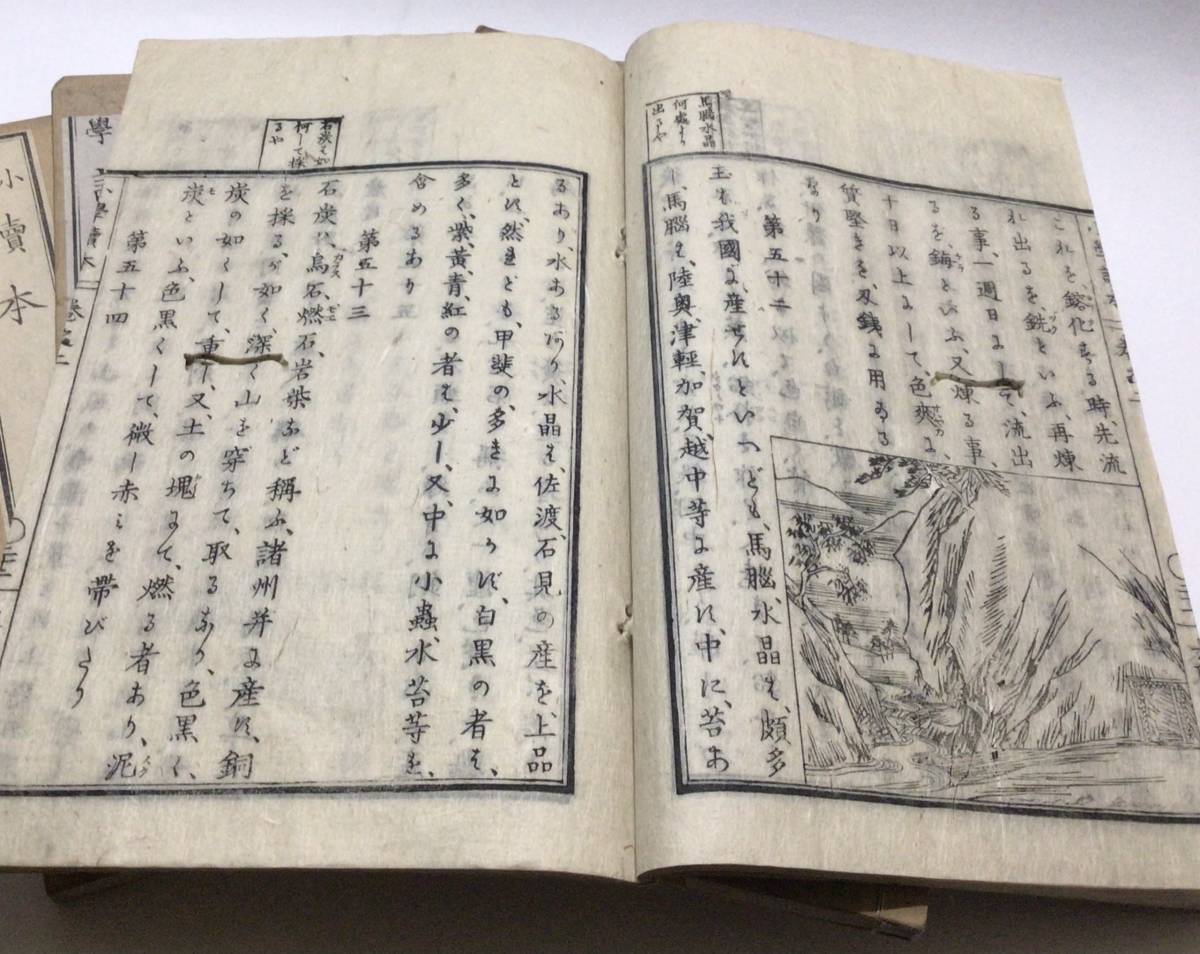 これを、鎔化する時、先流
れ出るを、銑といふ、再煉
る事、一週日にして、流出
るを、といふ、又煉る事、
十日以上にして、色爽に、
質堅きを、刄銕に用ゐる
なり
馬腦水晶
何處より
出るや
第五十二
玉は我國に産せずといへども、馬腦、水晶は、頗多
し、馬腦は、陸奥、津輕、加賀、越中等に産す、中に、苔あ
るあり、水あるあり、水晶は、佐渡、石見の産を、上品
とす、然れども、甲斐の、多きに如かず、白黒の者は、
多く、紫、黄、青、紅の者は、少し、又、中に小蟲、水、苔等を、
含めるあり
第五十三
石炭は如
何して採
るや
石炭は、烏石、燃石、岩柴など稱ふ、諸州并に産す、銅
を採るが如く、深く山を穿ちて、取るなり、色黒く、
炭の如くして、重し、又、土の塊にて、燃る者あり、泥
炭といふ、色黒くして、微し赤みを帶びたり
第五十四
小學讀本 卷之二
學
小 讀本